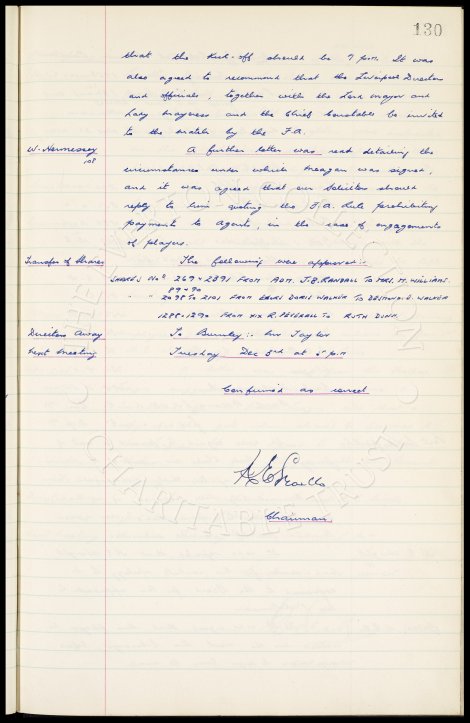 130
that the Kick-off should be 7 p.m. It was
also agreed to recommend that the Liverpool Directors
and officials, together with the Lord mayor and
Lady mayoress and the Chief Constable be invited
to the match by the F.A.
W. Hennessey
A further letter was read detailing the
circumstances under which Meagan was signed,
and it was agreed that our Solicitors should
reply to him quoting the F.A. Rule prohibiting
payments to agents, in the case of engagements
of players.
Transfer of Shares
The following were approved:-
SHARES Nos 269 & 2091 FROM ADM. J.B. RANDALL TO MRS. M. WILLIAMS.
89 & 90
" " 2098 TO 2101 FROM DORIS WALKER TO DESMOND. D. WALKER
1288 & 1290 FROM R. PEVERALL TO RUTH DUNN.
Directors Away
To Burnley:- Mr Taylor
Next Meeting
Tuesday Dec 3rd at 5 p.m
Confirmed as correct
Chairman
CHARITABLE TRUST